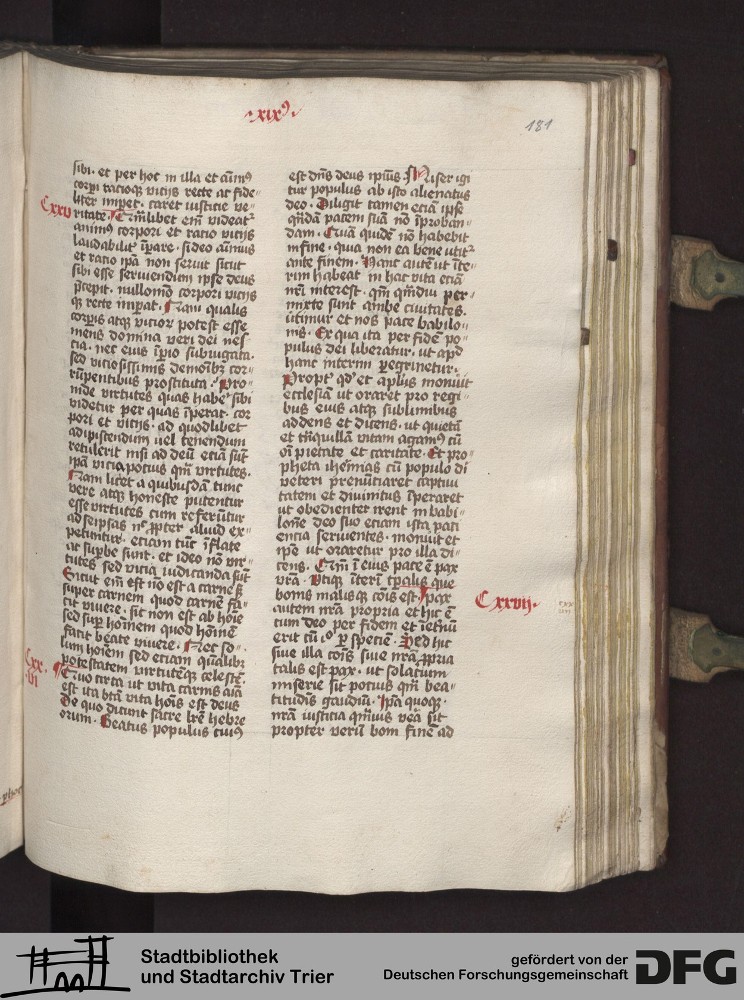 ·xix⁹·
181
sibi · et per hoc in illa et aīm⁹
corpi racioqꝫ vicijs recte ac fide
liter impet · caret iusticie ve
Cxxv
ritate · Qm̄libet em̄ videat᷑
anim⁹ corpori et racio vicijs
laudabilit᷑ īpare · si deo animus
et ratio ip̄a non seruit sicut
sibi esse seruiendum ipse deus
p̄cepit · nullomō corpori vicijs
qꝫ recte imꝑat · Nam qualis
corꝑis atqꝫ vicior potest esse
mens domina veri dei nes
cia · nec eius īpio subiugata ·
sed viciosissimis demoībꝫ cor
rūpentibus prostituta · Pro
inde virtutes quas habe᷑ sibi
videtur per quas īperat · cor
pori et vicijs · ad quodlibet
adipiscendum uel tenendum
retulerit nisi ad deū etiā sūt
ip̄a vicia pocius qm̄ virtutes ·
Nam licet a quibusdā tunc
vere atqꝫ honeste putentur
esse virtutes cum referūtur
ad seipsas nͨ ꝓpter aliud ex
petuntur · eciam tūc īflate
ac suꝑbe sunt · et ideo nō vir
tutes sed vicia iudicanda sūt
Sicut em̄ est nō est a carne sꝫ
super carnem quod carnē fa
cit viuere · sic non est ab hoīe
sed sup hoīnem quod hoīnē
facit beate viuere · Nec so
lum hoīem sed etiam qualibꝫ
Cxx
vi
potestatem virtutēqꝫ celestē ·
Quo circa ut vita carnis aīa
est ita btā vita hoīs est deus
De quo dicunt sacre lr̄e hebre
orum · Beatus populus cui⁹
est dn̄s deus ipsius · Miser igi
tur populus ab isto alienatus
deo · Diligit tamen eciā ipse
qn̄dā pacem suā nō īproban
dam · Quā quidē nō habebit
in fine · quia non ea bene utit᷑
ante finem · Hanc autē ut īte
rim habeat in hac vita eciā
nr̄i interest · qm̄ qm̄diu per
mixte sunt ambe ciuitates ·
utimur et nos pace babilo
nis · Ex qua ita per fidē po
pulus dei liberatur · ut apd̓
hanc interim ꝑegrinetur ·
Propt᷑ qd̓ et apl̄us monuit
ecclesiā ut oraret pro regi
bus eius atqꝫ sublimibus
addens et dicens · ut quietā
et tn̄quillā vitam agam⁹ cū
oī pietate et caritate · Et pro
pheta iheīmas cū populo di
veteri prenūciaret captiui
tatem et diuinitus īperaret
ut obedienter irent in babi
lone deo suo etiam ista paci
encia seruientes · monuit et
ip̄e ut oraretur pro illa di
cens · Qm̄ ī eius pace ē pax
vr̄a · Utiqꝫ īterī tꝑalis que
bonis malisqꝫ cōis est · Pax
Cxxvij·
cxx
vii
autem nr̄a propria et hic ē
cum deo per fidem et īet̄nū
erit cū iͦ ꝑ speciē · Sed hic
siue illa cōis siue nr̄a ꝓpria
talis est pax · ut solacium
miserie sit pocius qm̄ bea
titudīs gaudiū · Ip̄a quoqꝫ
nr̄a iusticia qm̄uis ve᷑a sit
propter verū boni finē ad
Stadtbibliothek
und Stadtarchiv Trier
gefördert von der
Deutschen Forschungsgemeinschaft
DFG